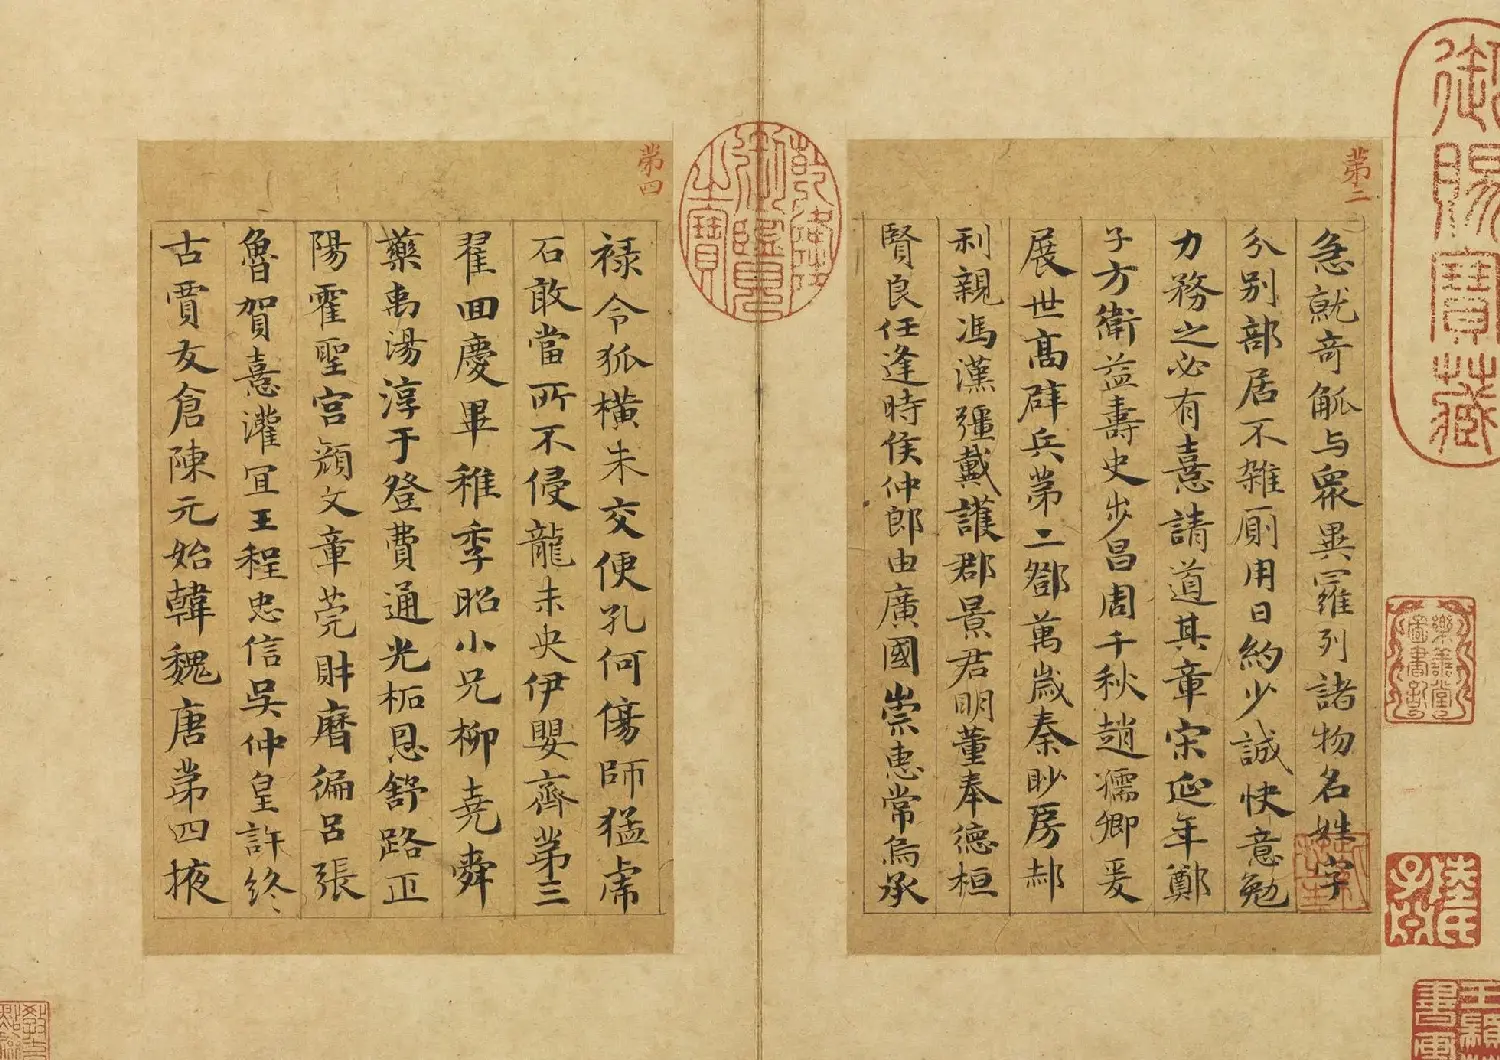 第二
急就奇觚与衆異羅列諸物名姓字
分別部居不雜廁用日約少誠快意勉
力務之必有憙請道其章宋延年鄭
子方衛益壽史步昌周千秋趙孺卿爰
展世高辟兵第二鄧萬歲秦眇房郝
利親馮漢彊戴護郡景君明董奉德桓
賢良任逢時侯仲郎由廣國崇惠常烏承
第四
禄令狐橫朱交便孔何傷師猛虎
石敢當所不侵龍未央伊嬰齊第三
翟回慶畢稚季昭小兄柳堯舜
藥禹湯淳于登費通光柘恩舒路正
陽霍聖宮顏文章莞財曆偏呂張
魯賀憙灌宜王程忠信吳仲皇許終
古賈友倉陳元始韓魏唐第四掖
乾隆御覽之寶
御賜寶藏
樂善堂圖書記